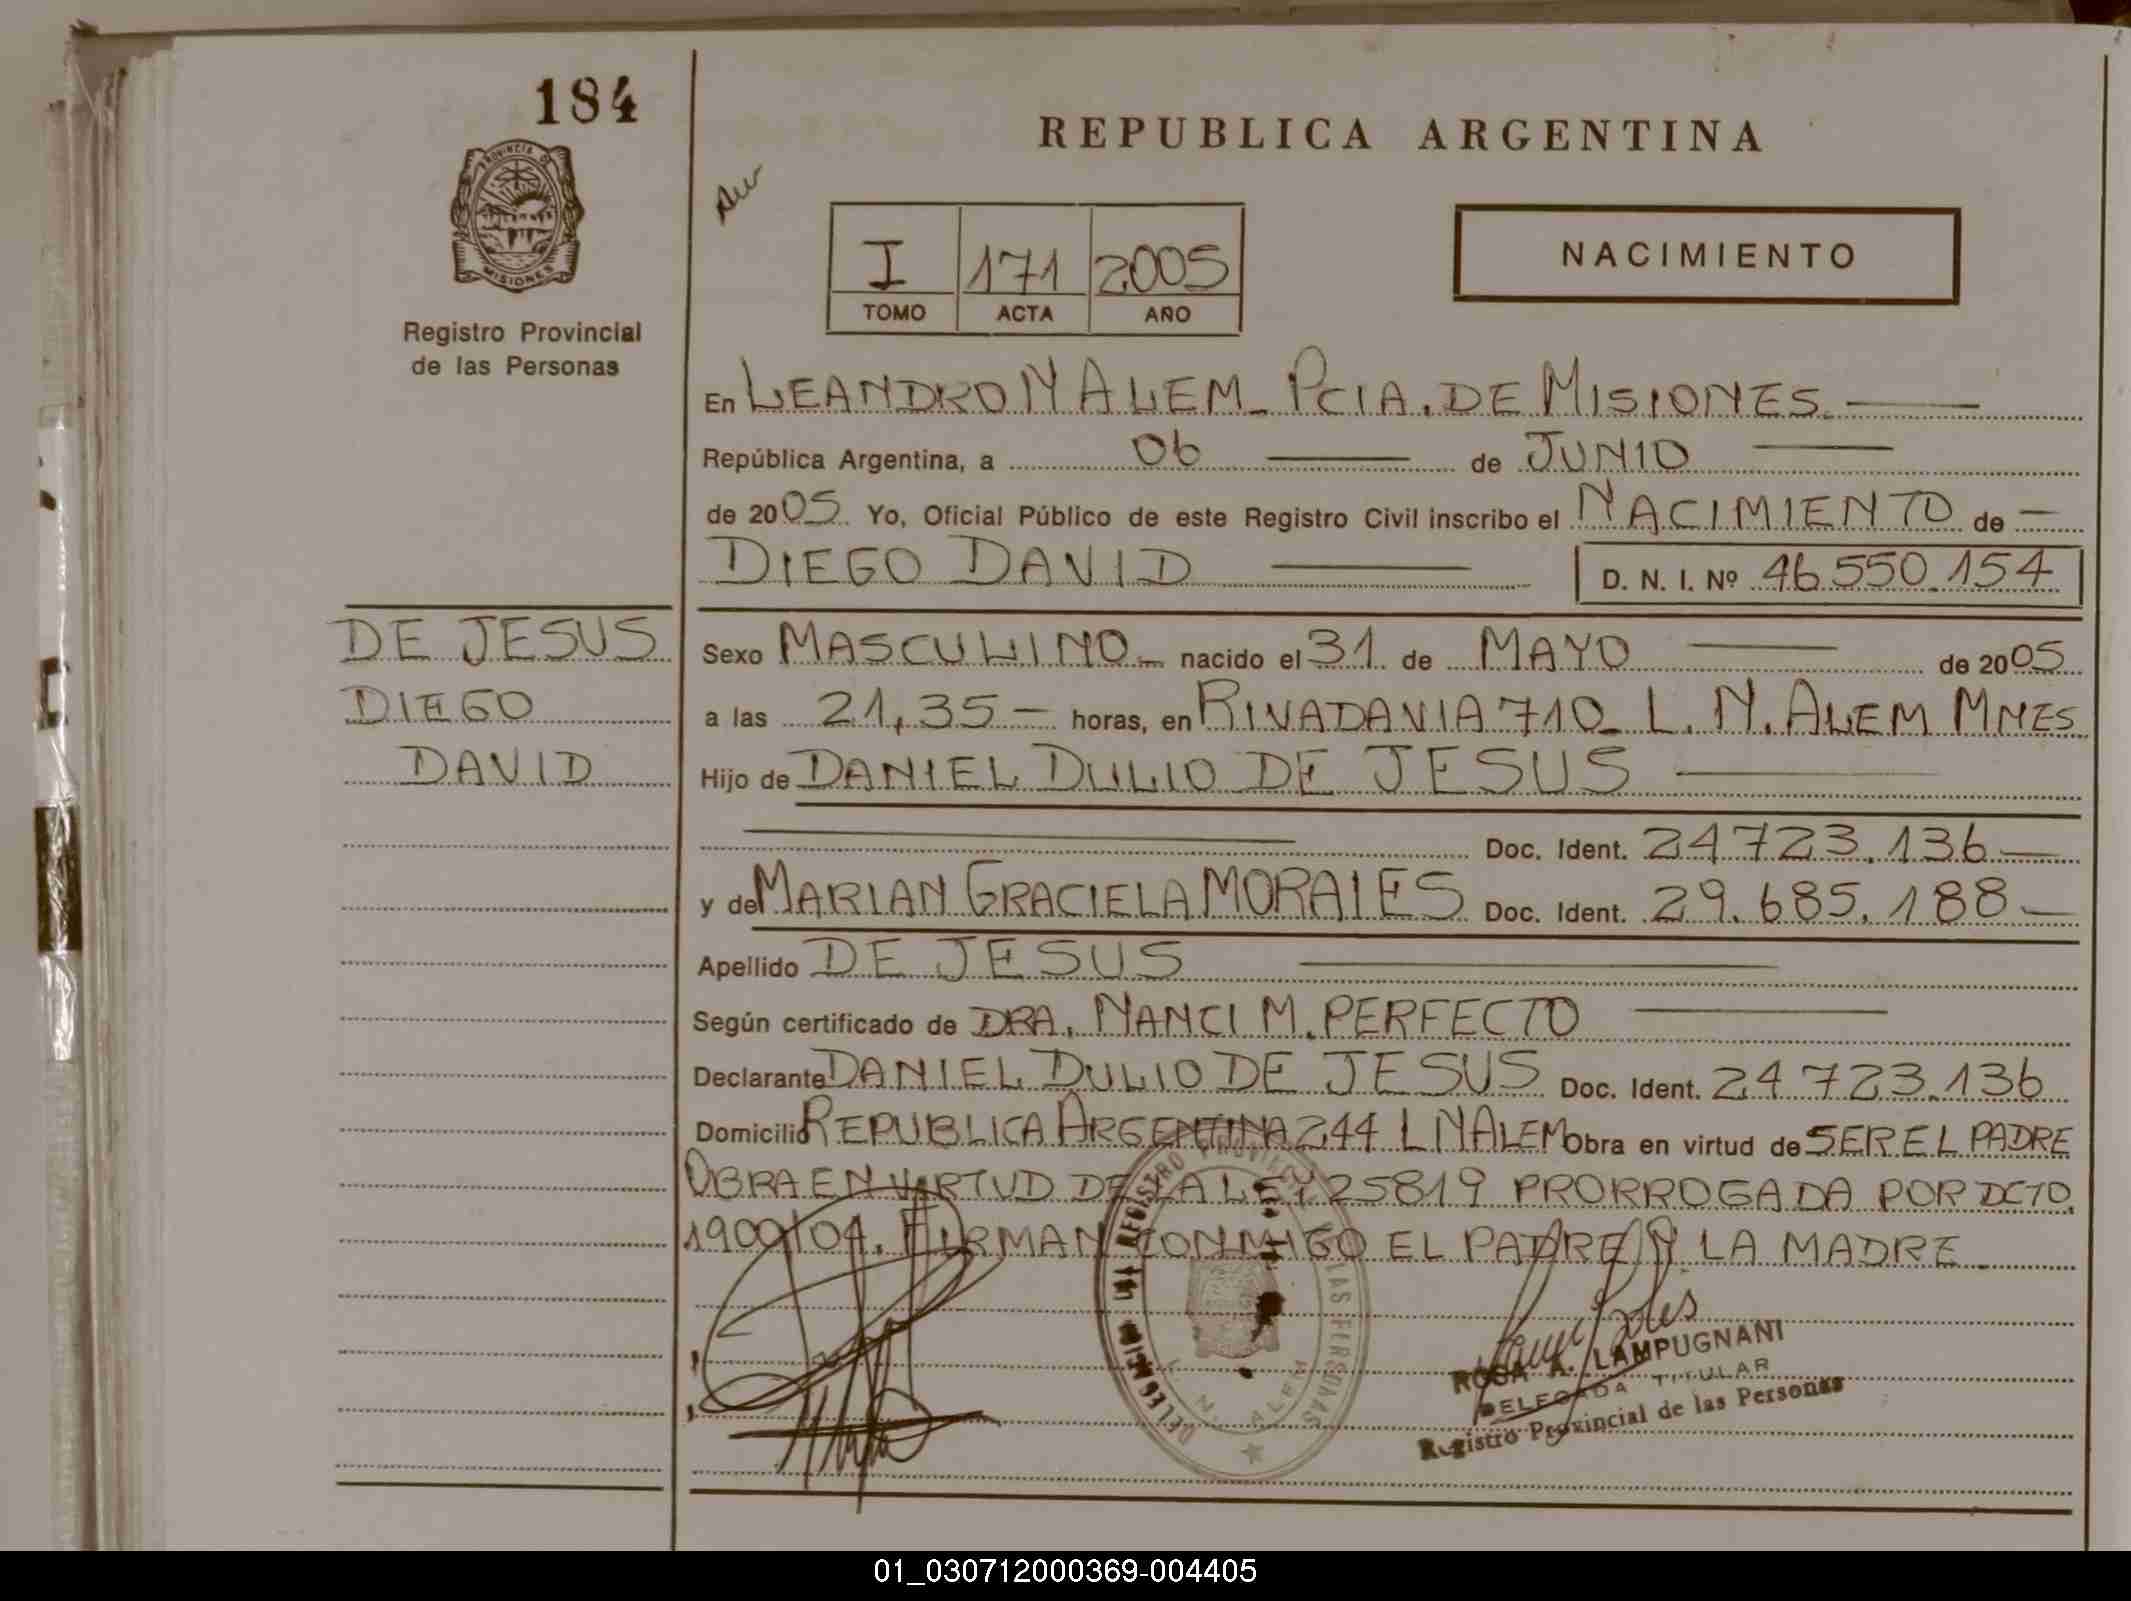 184
PROVINCIA DE
MISIONES
Registro Provincial
de las Personas
REPUBLICA ARGENTINA
I 171 2005
TOMO ACTA AÑO
NACIMIENTO
En LEANDRO N ALEM - PCIA. DE MISIONES
República Argentina, a 06 de JUNIO
de 2005 Yo, Oficial Público de este Registro Civil inscribo el NACIMIENTO de
DIEGO DAVID D. N. I. Nº 46.550.154
DE JESUS
DIEGO
DAVID
Sexo MASCULINO nacido el 31 de MAYO de 2005
a las 21,35 - horas, en RIVADAVIA 710 - L. N. ALEM MNES
Hijo de DANIEL DULIO DE JESUS
Doc. Ident. 24723.136
y de MARIAN GRACIELA MORALES Doc. Ident. 29.685.188
Apellido DE JESUS
Según certificado de DRA. NANCI M. PERFECTO
Declarante DANIEL DULIO DE JESUS Doc. Ident. 24723.136
Domicilio REPUBLICA ARGENTINA 244 L N ALEM Obra en virtud de SER EL PADRE
OBRA EN VIRTUD DE LA LEY 25819 PRORROGADA POR DCTO.
1900/04. FIRMAN CONMIGO EL PADRE Y LA MADRE
REGISTRO PROVINCIAL DE LAS PERSONAS
L. N. ALEM
ROSA A. LAMPUGNANI
DELEGADA TITULAR
Registro Provincial de las Personas
01_030712000369-004405